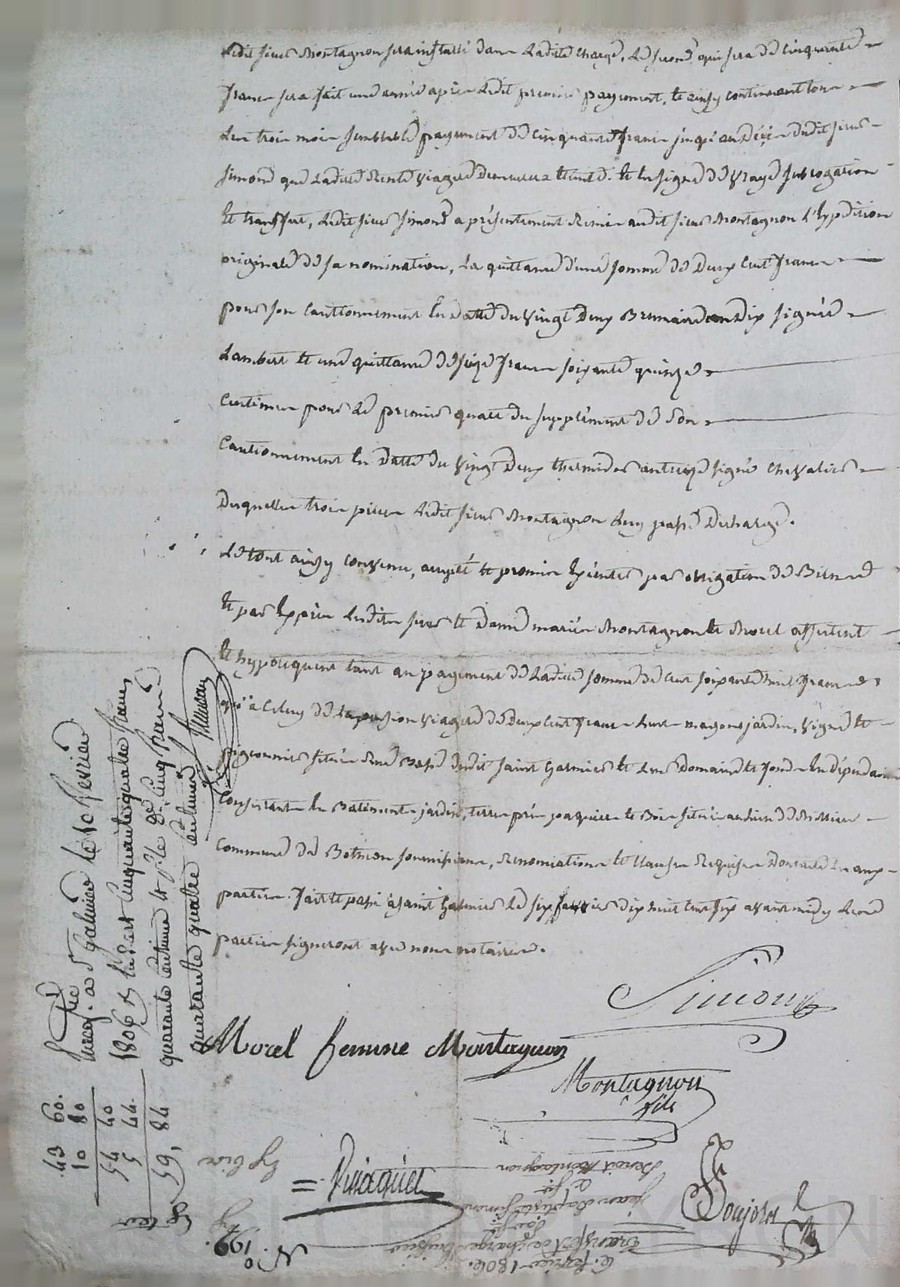 ledit sieur Montagnon sera installé dans ladite charge, le second qui sera de cinquante
francs sera fait une année après ledit premier payement, et ainsy continuant tous
les trois mois semblable payement de cinquante francs jusqu'au décès dudit sieur
Simond que ladite rente viagère demeurera éteinte. Et en signe de vraye subrogation
et transfert, ledit sieur Simond a présentement remis audit sieur Montagnon l'expédition
originale de sa nomination, la quittance d'une somme de deux cent francs
pour son cautionnement en datte du vingt deux Brumaire an dix signée
Lambert et une quittance de seize francs soixante quinze
centimes pour le premier quart du supplément de son
cautionnement en datte du vingt deux thermidor an treize signé Chevalier
desquelles trois pièces ledit sieur Montagnon leur passe décharge.
Le tout ainsy convenu, accepté et promis exécuter par obligation de Biens
et par exprès lesdits sieur et dame mariés Montagnon et Morel affectent
et hypothèquent tant au payement de ladite somme de cent soixante huit francs
qu'à celuy de la pension viagère de deux cent francs leurs maisons jardin, vigne et
pigeonnier situés dudit Saint Galmier et leur domaine et fonds en dépendant
consistant en Batiments jardin, terres prés paquiers et Bois situés au lieu de
commune de soumissions, renonciations et clauses requises dont acte aux
parties. Fait et passé à Saint Galmier le six février dix huit cent six avant midy les
parties signeront avec nous notaires.
Simond
Morel femme Montagnon
Montagnon
fils
Pinaquet
Goujon
Enreg. à St Galmier le 10 février
1806 cinquante quatre francs
quarante centimes et cinq francs
quarante quatre centimes
43 60.
10 80
54 40
5 44.
59, 84
6 février 1806.
Jean Baptiste Simon
à Sr
Benoit Montagnon
No 199.